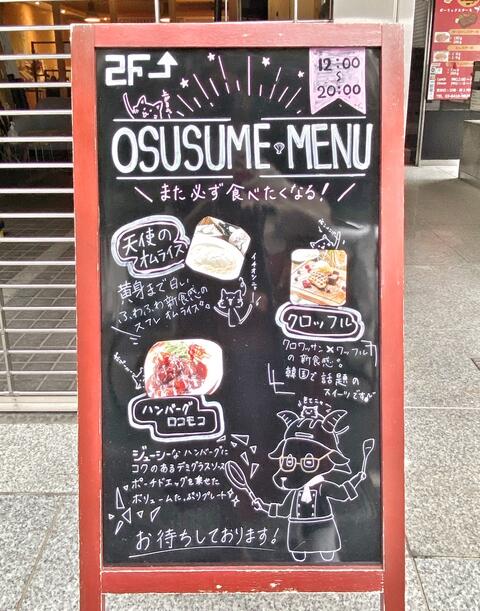 2F
12:00
S
20:00
OSUSUME MENU
また必ず食べたくなる!
天使の
オムライス
イチオシニャ
黄身まで白い
ふわふわ新食感の
スフレオムライス
クロッフル
クロワッサン×ワッフル
の新食感。
韓国で話題の
スイーツです
ハンバーグ
ロコモコ
ジューシーなハンバーグに
コクのあるデミグラスソース
ポーチドエッグを乗せた
ボリュームたっぷりプレート
お待ちしております!